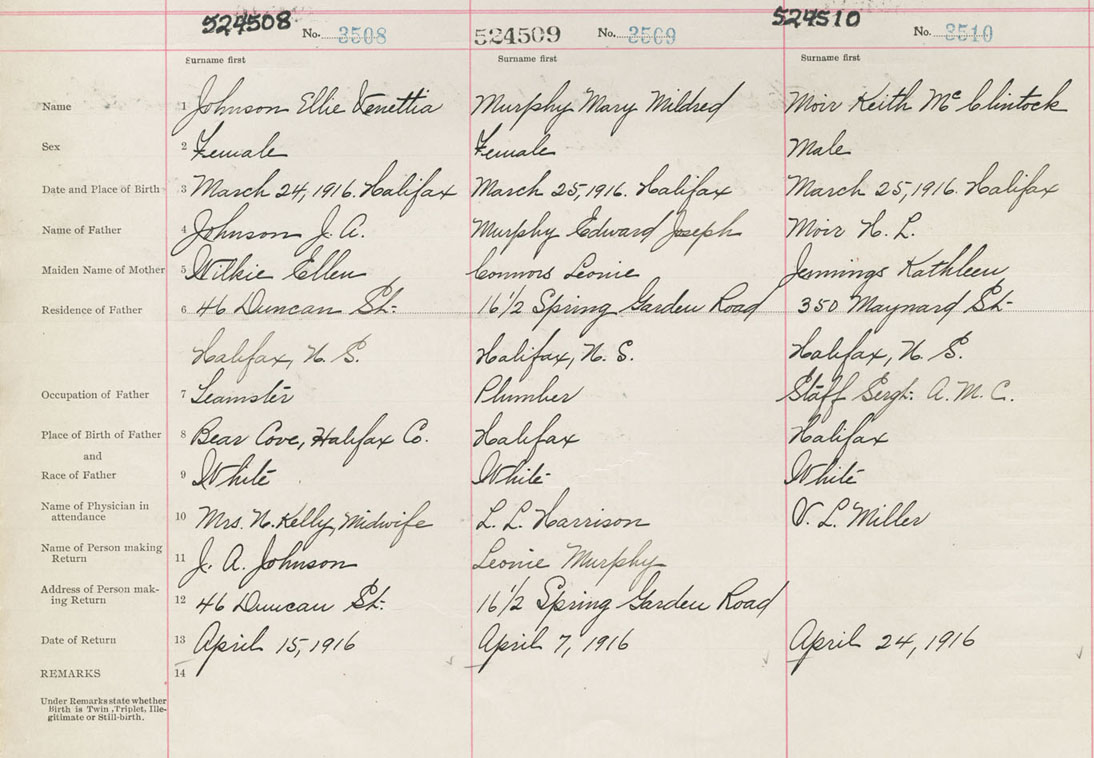 524508 No. 3508 524509 No. 3509 524510 No. 3510
Surname first Surname first Surname first
Name 1 Johnson Ellie Venettia Murphy Mary Mildred Moir Keith Mc Clintock
Sex 2 Female Female Male
Date and Place of Birth 3 March 24, 1916. Halifax March 25, 1916. Halifax March 25, 1916. Halifax
Name of Father 4 Johnson J. A. Murphy Edward Joseph Moir H. L.
Maiden Name of Mother 5 Wilkie Ellen Connors Leonie Jennings Kathleen
Residence of Father 6 46 Duncan St. 16 1/2 Spring Garden Road 350 Maynard St.
Halifax, N. S. Halifax, N. S. Halifax, N. S.
Occupation of Father 7 Teamster Plumber Staff Sergt. A. M. C.
Place of Birth of Father 8 Bear Cove, Halifax Co. Halifax Halifax
and
Race of Father 9 White White White
Name of Physician in
attendance 10 Mrs. N. Kelly, Midwife L. L. Harrison V. L. Miller
Name of Person making
Return 11 J. A. Johnson Leonie Murphy
Address of Person mak-
ing Return 12 46 Duncan St. 16 1/2 Spring Garden Road
Date of Return 13 April 15, 1916 April 7, 1916 April 24, 1916
REMARKS 14
Under Remarks state whether
Birth is Twin, Triplet, Ille-
gitimate or Still-birth.